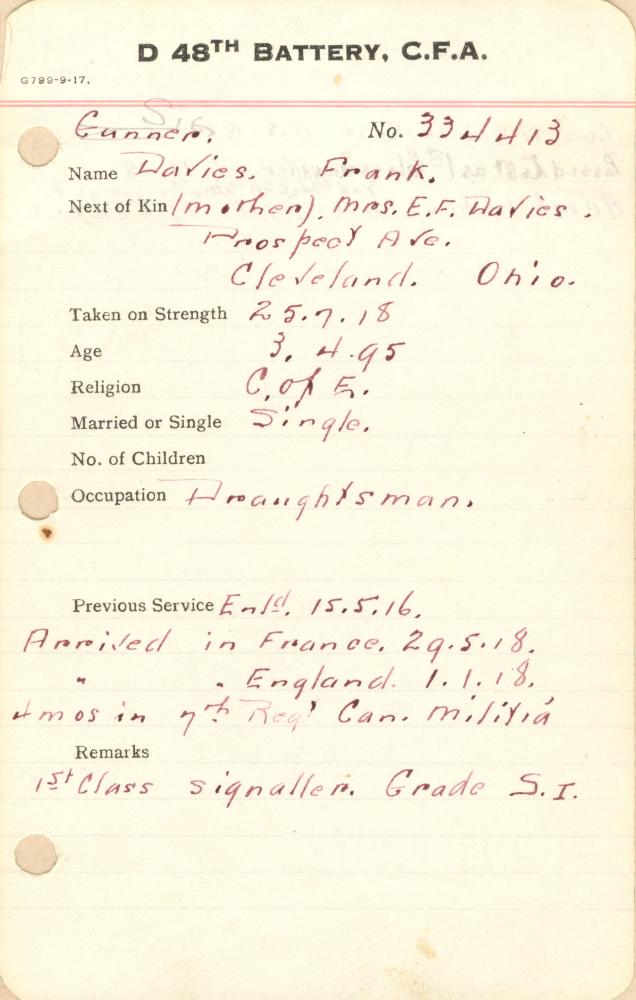 D 48TH BATTERY, C.F.A.
G799-9-17.
Gunner. No. 334413
Name Davies. Frank.
Next of Kin (mother). Mrs. E.F. Davies.
Prospect Ave.
Cleveland. Ohio.
Taken on Strength 25.7.18
Age 3.4.95
Religion C. of E.
Married or Single Single.
No. of Children
Occupation Draughtsman.
Previous Service Enld. 15.5.16.
Arrived in France. 29.5.18.
" " England. 1.1.18.
4 mos in 7th Regt Can. Militia
Remarks
1st Class Signaller. Grade S.I.